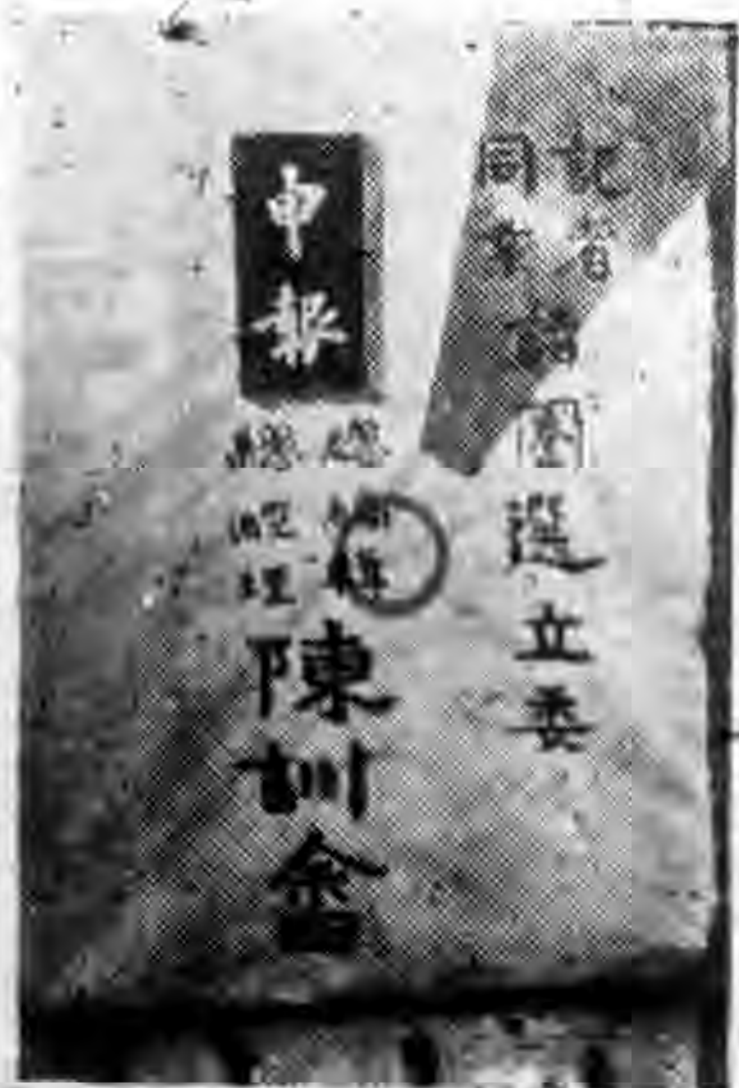 記者
同業
請圈選立委
申報
總編輯
總經理
陳訓畬